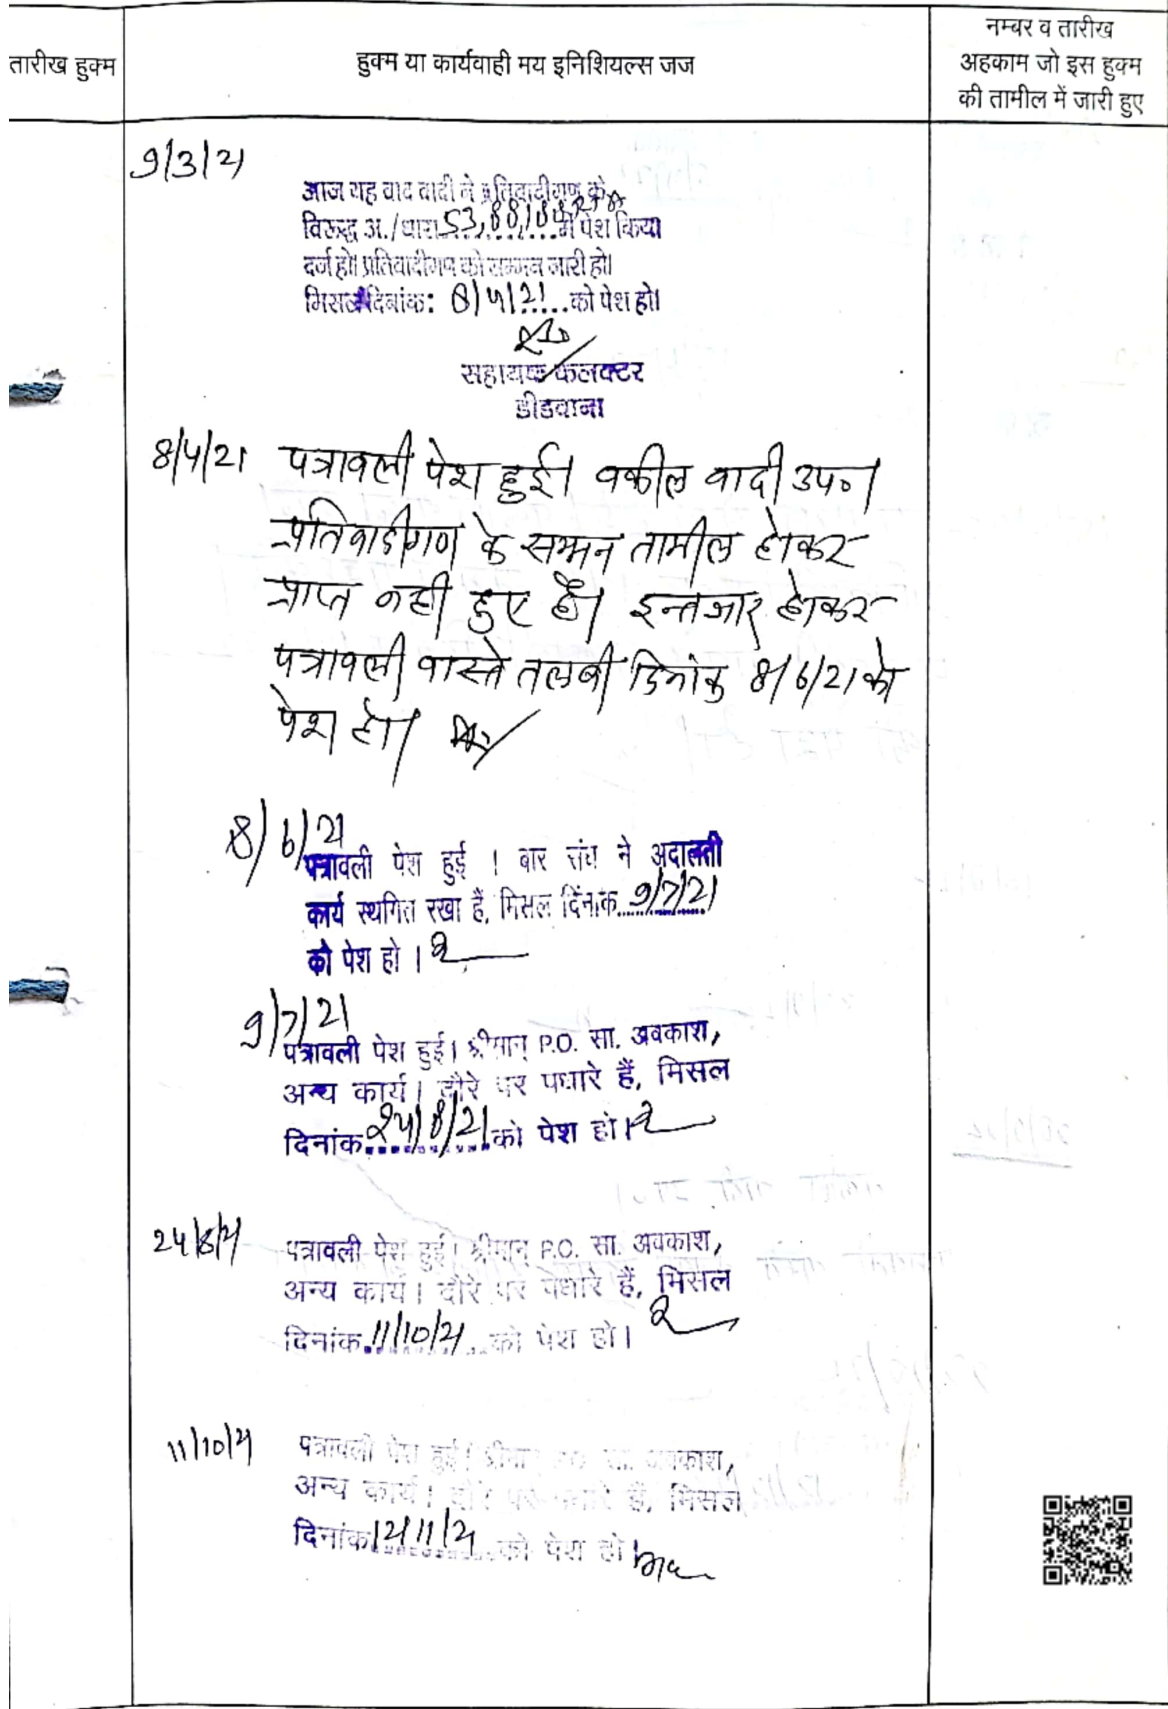 तारीख हुक्म
हुक्म या कार्यवाही मय इनिशियल्स जज
नम्बर व तारीख
अहकाम जो इस हुक्म
की तामील में जारी हुए
9/3/21
आज यह वाद वादी ने प्रतिवादीगण के
विरूद्ध अ./धारा 53,88,188 में पेश किया
दर्ज हो। प्रतिवादीगण को सम्मन जारी हो।
मिसल दिनांक: 8/4/21 को पेश हो।
सहायक कलक्टर
डीडवाना
8/4/21 पत्रावली पेश हुई। वकील वादी उप०।
प्रतिवादीगण के सम्मन तामील होकर
प्राप्त नही हुए है। इन्तजार होकर
पत्रावली वास्ते तलबी दिनांक 8/6/21 को
पेश हो।
8/6/21
पत्रावली पेश हुई । बार संघ ने अदालती
कार्य स्थगित रखा हैं, मिसल दिंनाक 9/7/21
को पेश हो ।
9/7/21
पत्रावली पेश हुई। श्रीमान् P.O. सा. अवकाश,
अन्य कार्य। दौरे पर पधारे हैं, मिसल
दिनांक 24/8/21 को पेश हो।
24/8/21 पत्रावली पेश हुई। श्रीमान् P.O. सा. अवकाश,
अन्य कार्य। दौरे पर पधारे हैं, मिसल
दिनांक 11/10/21 को पेश हो।
11/10/21 पत्रावली पेश हुई। श्रीमान् P.O. सा. अवकाश,
अन्य कार्य। दौरे पर पधारे हैं, मिसल
दिनांक 12/11/21 को पेश हो।